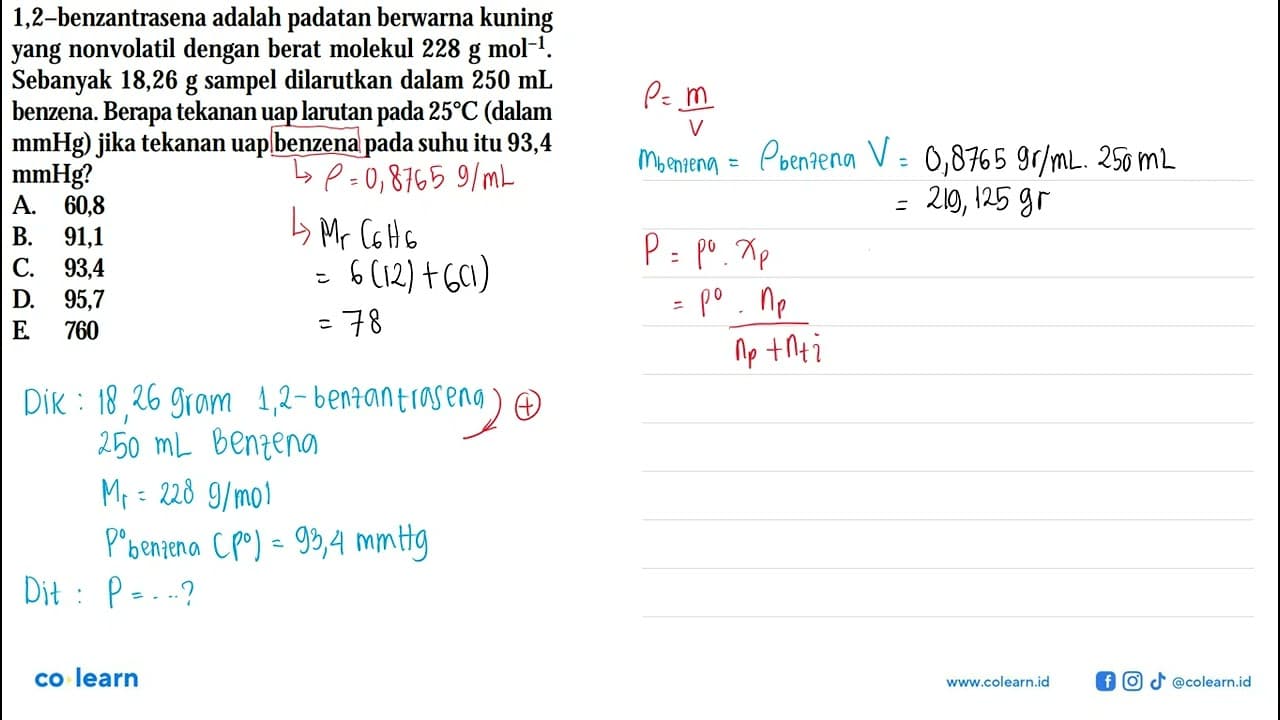 1,2–benzantrasena adalah padatan berwarna kuning
yang nonvolatil dengan berat molekul 228 g mol⁻¹.
Sebanyak 18,26 g sampel dilarutkan dalam 250 mL
benzena. Berapa tekanan uap larutan pada 25°C (dalam
mmHg) jika tekanan uap benzena pada suhu itu 93,4
mmHg?
A. 60,8
B. 91,1
C. 93,4
D. 95,7
E. 760
↳ ρ = 0,8765 g/mL
↳ Mr C6H6
= 6(12) + 6(1)
= 78
Dik : 18,26 gram 1,2-benzantrasena
+
250 mL Benzena
Mr = 228 g/mol
P° benzena (P°) = 93,4 mmHg
Dit : P = ....?
ρ = m
V
m benzena = ρ benzena V = 0,8765 gr/mL . 250 mL
= 219,125 gr
P = P° . xp
= P° . np
np + nt i
co learn
www.colearn.id
@colearn.id